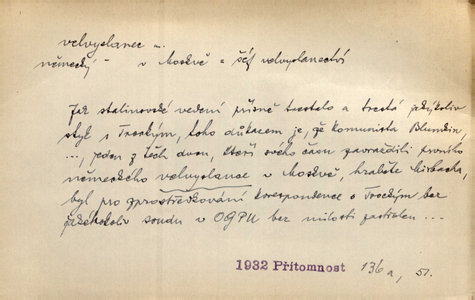 velvyslanec ..
německý – v Moskvě = šéf velvyslanectví
Jak stalinovské vedení přísně trestalo a trestá jakýkoliv
styk s Trockým, toho důkazem je, že komunista Blumkin
..., jeden z těch dvou, kteří svého času zavraždili prvního
německého velvyslance v Moskvě, hraběte Mirbacha,
byl pro zprostředkování korespondence s Trockým bez
jakéhokoliv soudu v OGPU bez milosti zastřelen ...
1932 Přítomnost 136a, 51.